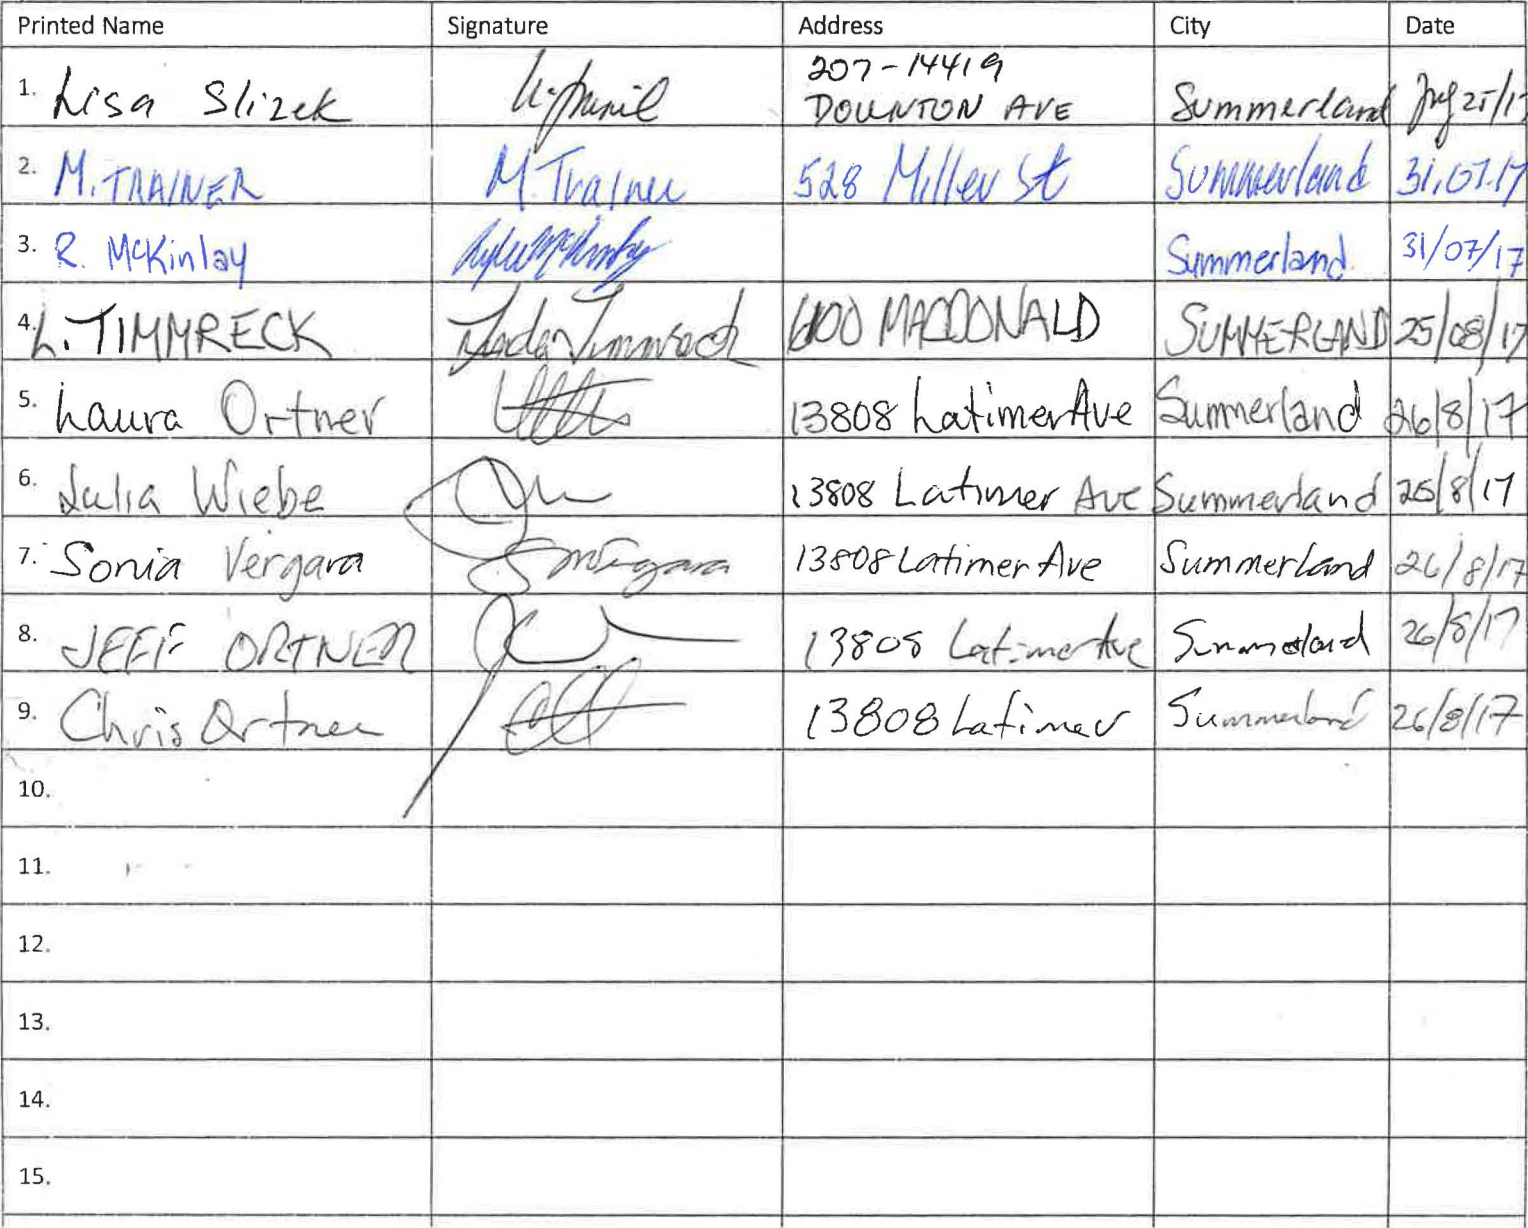 Printed Name Signature Address City Date
207-14419
1. Lisa Slizek DOWNTON AVE Summerland July 25/17
2. M. TRAINER M Trainer 528 Miller St Summerland 31.07.17
3. R. McKinlay Summerland 31/07/17
4. L. TIMMRECK Linda Timmreck 6100 MACDONALD SUMMERLAND 25/08/17
5. Laura Ortner 13808 Latimer Ave Summerland 26/8/17
6. Julia Wiebe 13808 Latimer Ave Summerland 25/8/17
7. Sonia Vergara 13808 Latimer Ave Summerland 26/8/17
8. JEFF ORTNER 13808 Latimer Ave Summerland 26/8/17
9. Chris Ortner 13808 Latimer Summerland 26/8/17
10.
11.
12.
13.
14.
15.